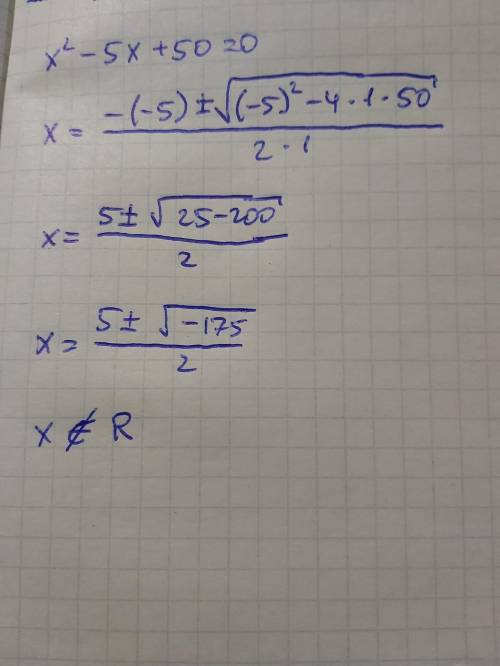 x² - 5x + 50 = 0
x = (-(-5) ± √((-5)² - 4 · 1 · 50)) / (2 · 1)
x = (5 ± √(25 - 200)) / 2
x = (5 ± √(-175)) / 2
x ∉ R